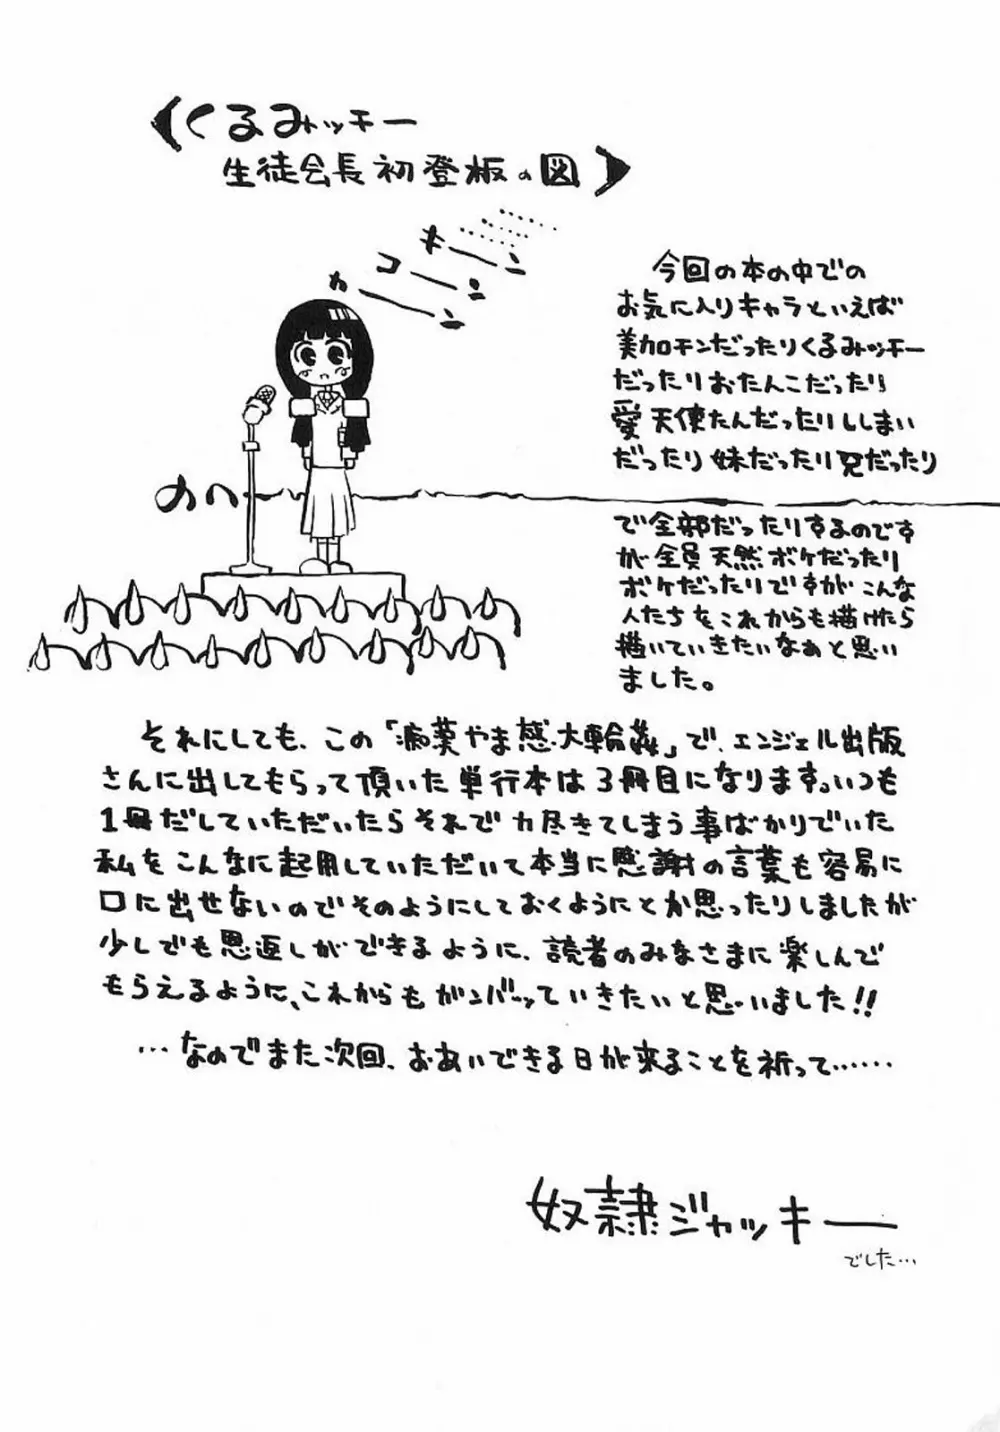 くるみッチー
生徒会長初登板の図
キーン
コーン
カーン
今回の本の中での
お気に入りキャラといえば
美加チンだったりくるみッチー
だったりおたんこだったり
愛天使たんだったりししまい
だったり妹だったり兄だったり
で全部だったりするのです
が全員天然ボケだったり
ボケだったりですがこんな
人たちをこれからも描けたら
描いていきたいなぁと思い
ました。
それにしても、この「痴漢やま感大輪姦」で、エンジェル出版
さんに出してもらって頂いた単行本は3冊目になります。いつも
1冊だしていただいたらそれで力尽きてしまう事ばかりでいた
私をこんなに起用していただいて本当に感謝の言葉も容易に
口に出せないのでそのようにしておくようにとか思ったりしましたが
少しでも恩返しができるように、読者のみなさまに楽しんで
もらえるように、これからもガンバーッていきたいと思いました!!
…なのでまた次回、おあいできる日が来ることを祈って……
奴隷ジャッキー
でした…